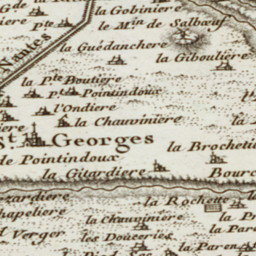 la Gobiniere
pte.
le Min. de Salbœuf
Nantes
la Guédanchere
la Gibouliere
la Pte Boutiere
pt. Pointindoux
l'Ondiere
la Chauviniere
St. Georges
la Brocheti
de Pointindoux
la Gitardiere
Bour
zardiere
la Rochette
hapeliere
la Chauviniere
la Pr
Verger
les Douceries
la Par
la Paren